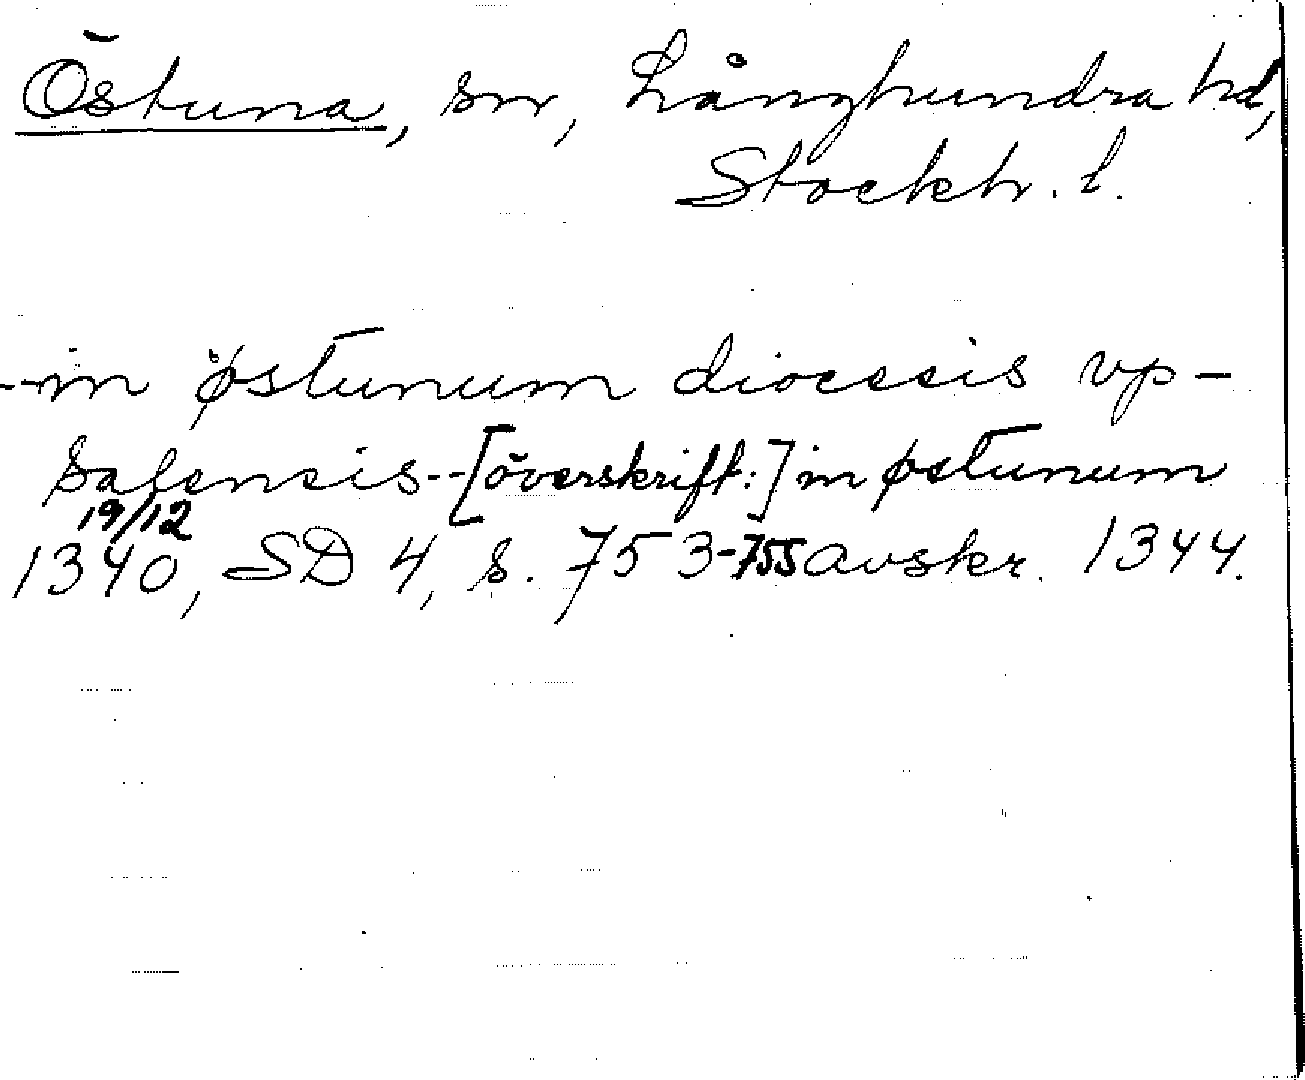 Östuna, sn, Långhundra hd,
Stockh. l.
--in østunum diocesis vp-
salensis--[överskrift:] in østunum
19/12
1340, SD 4, s. 753-755 avskr. 1344.